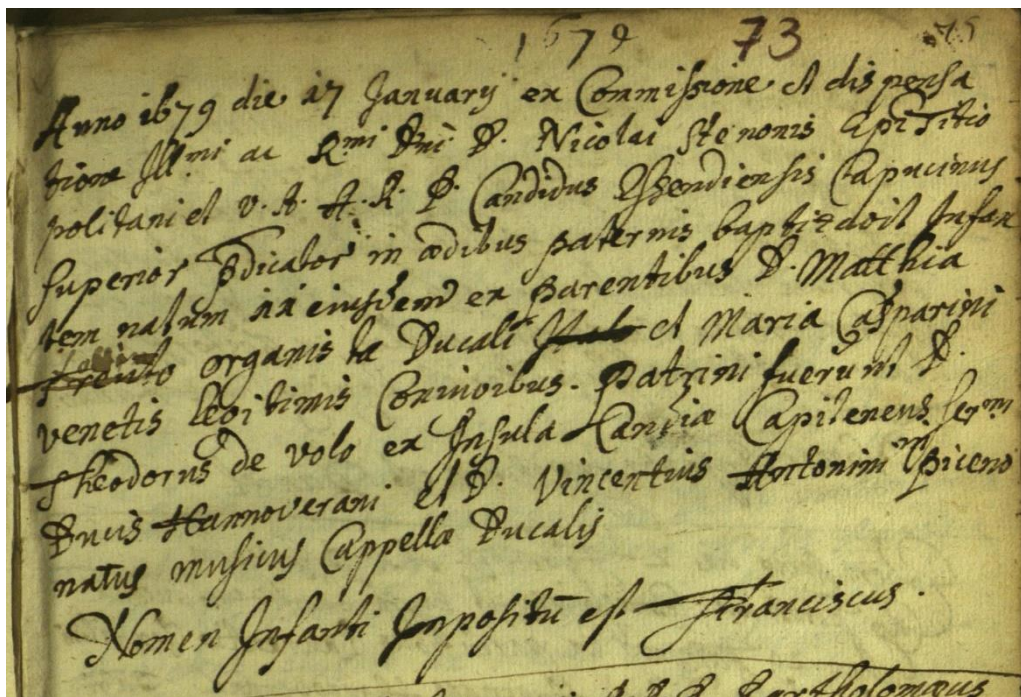 1679 73 75
Anno 1679 die 17 Januarÿ ex Commissione et dispensa
tione Ill.mi ac R.mi Dni D. Nicolai Stenonis Epi Titio
politani et V. A. A. R. P. Candidus Capucinus
superior Pdicator in ædibus paternis baptizavit Infan
tem natum 11 eiusdem ex parentibus D. Matthia
organista Ducali et Maria Casparini
venetis legitimis Coniugibus. Patrini fuerunt D.
Theodorus de Volo ex Insula Candiæ Capiteneus Ser.mi
Ducis Hannoverani et D. Vincentius Antonini in Piceno
natus musicus Cappellæ Ducalis
Nomen Infanti Impositū est Franciscus.